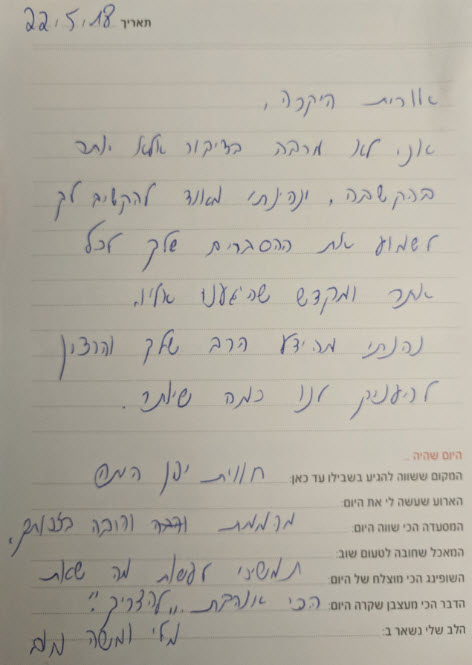 תאריך 22.5.18
אורית היקרה,
אני לא מרבה בדיבור אלא יותר
בהקשבה, ונהינתי מאוד להקשיב לך
לשמוע את ההסברים שלך לכל
אתר ומקדש שהיגענו אליו.
נהנתי מהידע הרב שלך והרצון
להעניק לנו כמה שיותר.
היום שהיה ..
המקום ששווה להגיע בשבילו עד כאן: חווית יפן היתה
הארוע שעשה לי את היום:
המסעדה הכי שווה היום: מרוממת והרבה בזכותך.
המאכל שחובה לטעום שוב:
השופינג הכי מוצלח של היום: תמשיכי לעשות מה שאת
הדבר הכי מעצבן שקרה היום: הכי אוהבת "להדריך".
הלב שלי נשאר ב: מלי ומשה